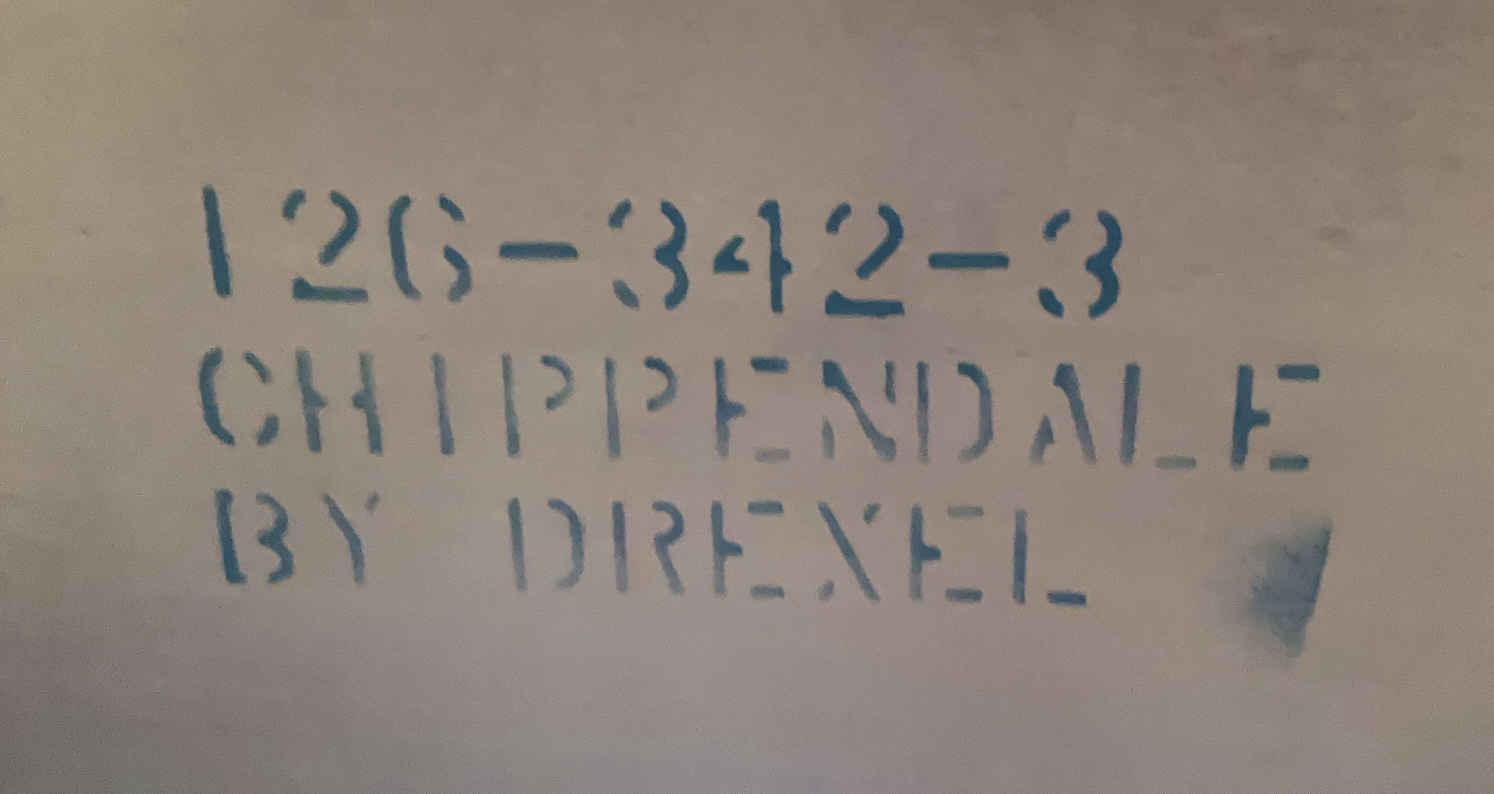 126-342-3
CHIPPENDALE
BY DREXEL